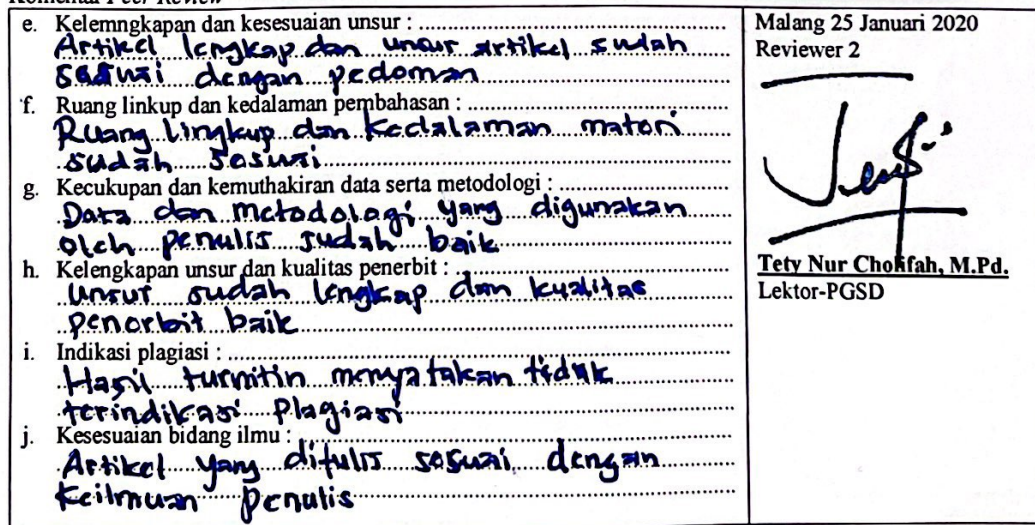 Komentar Peer Review
e. Kelemngkapan dan kesesuaian unsur :
Artikel lengkap dan unsur artikel sudah
sesuai dengan pedoman
f. Ruang linkup dan kedalaman pembahasan :
Ruang lingkup dan kedalaman materi
sudah sesuai
g. Kecukupan dan kemuthakiran data serta metodologi :
Data dan metodologi yang digunakan
oleh penulis sudah baik
h. Kelengkapan unsur dan kualitas penerbit :
Unsur sudah lengkap dan kualitas
penerbit baik
i. Indikasi plagiasi :
Hasil turnitin menyatakan tidak
terindikasi Plagiasi
j. Kesesuaian bidang ilmu :
Artikel yang ditulis sesuai dengan
Keilmuan penulis
Malang 25 Januari 2020
Reviewer 2
Tety Nur Cholifah, M.Pd.
Lektor-PGSD